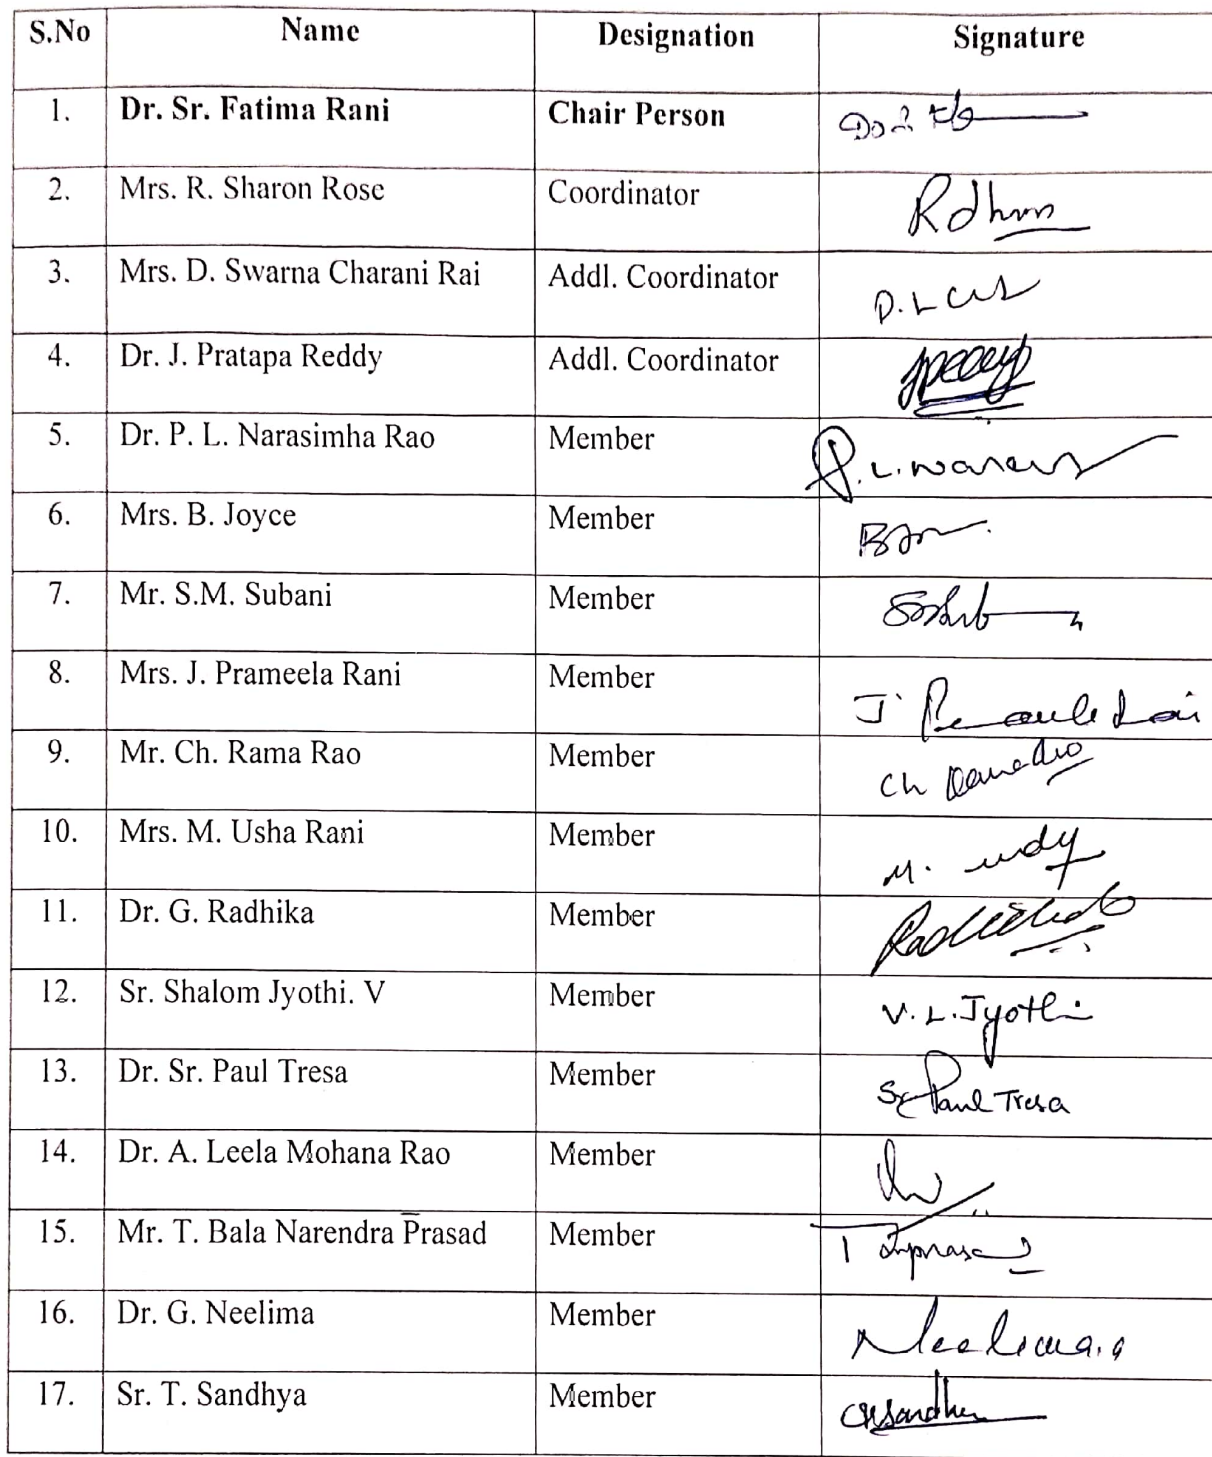 S.No Name Designation Signature
1. Dr. Sr. Fatima Rani Chair Person
2. Mrs. R. Sharon Rose Coordinator
3. Mrs. D. Swarna Charani Rai Addl. Coordinator
4. Dr. J. Pratapa Reddy Addl. Coordinator
5. Dr. P. L. Narasimha Rao Member
6. Mrs. B. Joyce Member
7. Mr. S.M. Subani Member
8. Mrs. J. Prameela Rani Member
9. Mr. Ch. Rama Rao Member
10. Mrs. M. Usha Rani Member
11. Dr. G. Radhika Member
12. Sr. Shalom Jyothi. V Member V. L. Jyothi
13. Dr. Sr. Paul Tresa Member Sr Paul Tresa
14. Dr. A. Leela Mohana Rao Member
15. Mr. T. Bala Narendra Prasad Member
16. Dr. G. Neelima Member Neelima.G
17. Sr. T. Sandhya Member